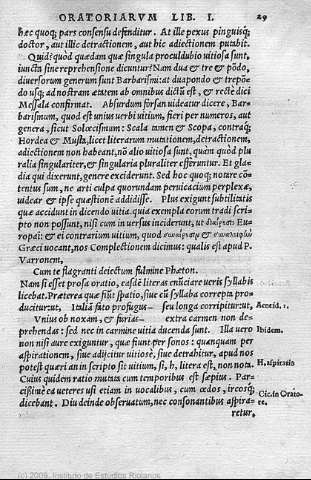 ORATORIARVM LIB. I. 29
hęc quoq; pars consensu defenditur. At ille pexus pinguisq;
doctor, aut illic detractionem, aut hic adiectionem putabit.
Quid? quòd quædam quæ singula procul dubio uitiosa sunt,
iuncta sine reprehensione dicuntur? Nam dua & tre & põdo,
diuersorum generum sunt Barbarismi: at duapondo & trepõn-
do usq; ad nostram ætatem ab omnibus dictū est, & rectè dici
Messala confirmat. Absurdum forsan uideatur dicere, Bar-
barismum, quod est unius uerbi uitium, fieri per numeros, aut
genera, sicut Solœcismum: Scala tamen & Scopa, contraq́;
Hordea & Mulsa, licet literarum mutationem, detractionem,
adiectionem non habeant, nō alio uitiosa sunt, quàm quòd plu
ralia singulariter, & singularia pluraliter efferuntur. Et gla-
dia qui dixerunt, genere exciderunt. Sed hoc quoq; notare cō-
tentus sum, ne arti culpa quorundam peruicacium perplexæ,
uidear & ipse quæstionē addidisse. Plus exigunt subtilitatis
quæ accidunt in dicendo uitia, quia exempla eorum tradi scri-
pto non possunt, nisi cum in uersus inciderunt, ut
Europai: & ei contrarium uitium, quod
Græci uocant, nos Complectionem dicimus: qualis est apud P.
Varronem,
Cum te flagranti deiectum fulmine Phæton.
Nam si esset prosa oratio, easdē literas enūciare ueris syllabis
licebat. Prætereà quæ fiūt spatio, siue cū syllaba correpta pro-
ducitur: ut, Italiã fato profugus— seu longa corripitur: ut, Aeneid. 1.
Vnius ob noxam, & furias— extra carmen non de-
prehendas: sed nec in carmine uitia ducenda sunt. Illa uero Ibidem.
non nisi aure exiguntur, quæ fiunt per sonos: quanquam per
aspirationem, siue adijcitur uitiosè, siue detrahitur, apud nos
potest quæri an in scripto sit uitium, si, h, litera est, non nota. H. aspiratio
Cuius quidem ratio mutata cum temporibus est sæpius. Par-
cissimè ea ueteres usi etiam in uocalibus, cum œdos, ircosq; Cic. in Orato-
dicebant. Diu deinde obseruatum, nec consonantibus aspira- re.
retur,
(c) 2009, Instituto de Estudios Riojanos